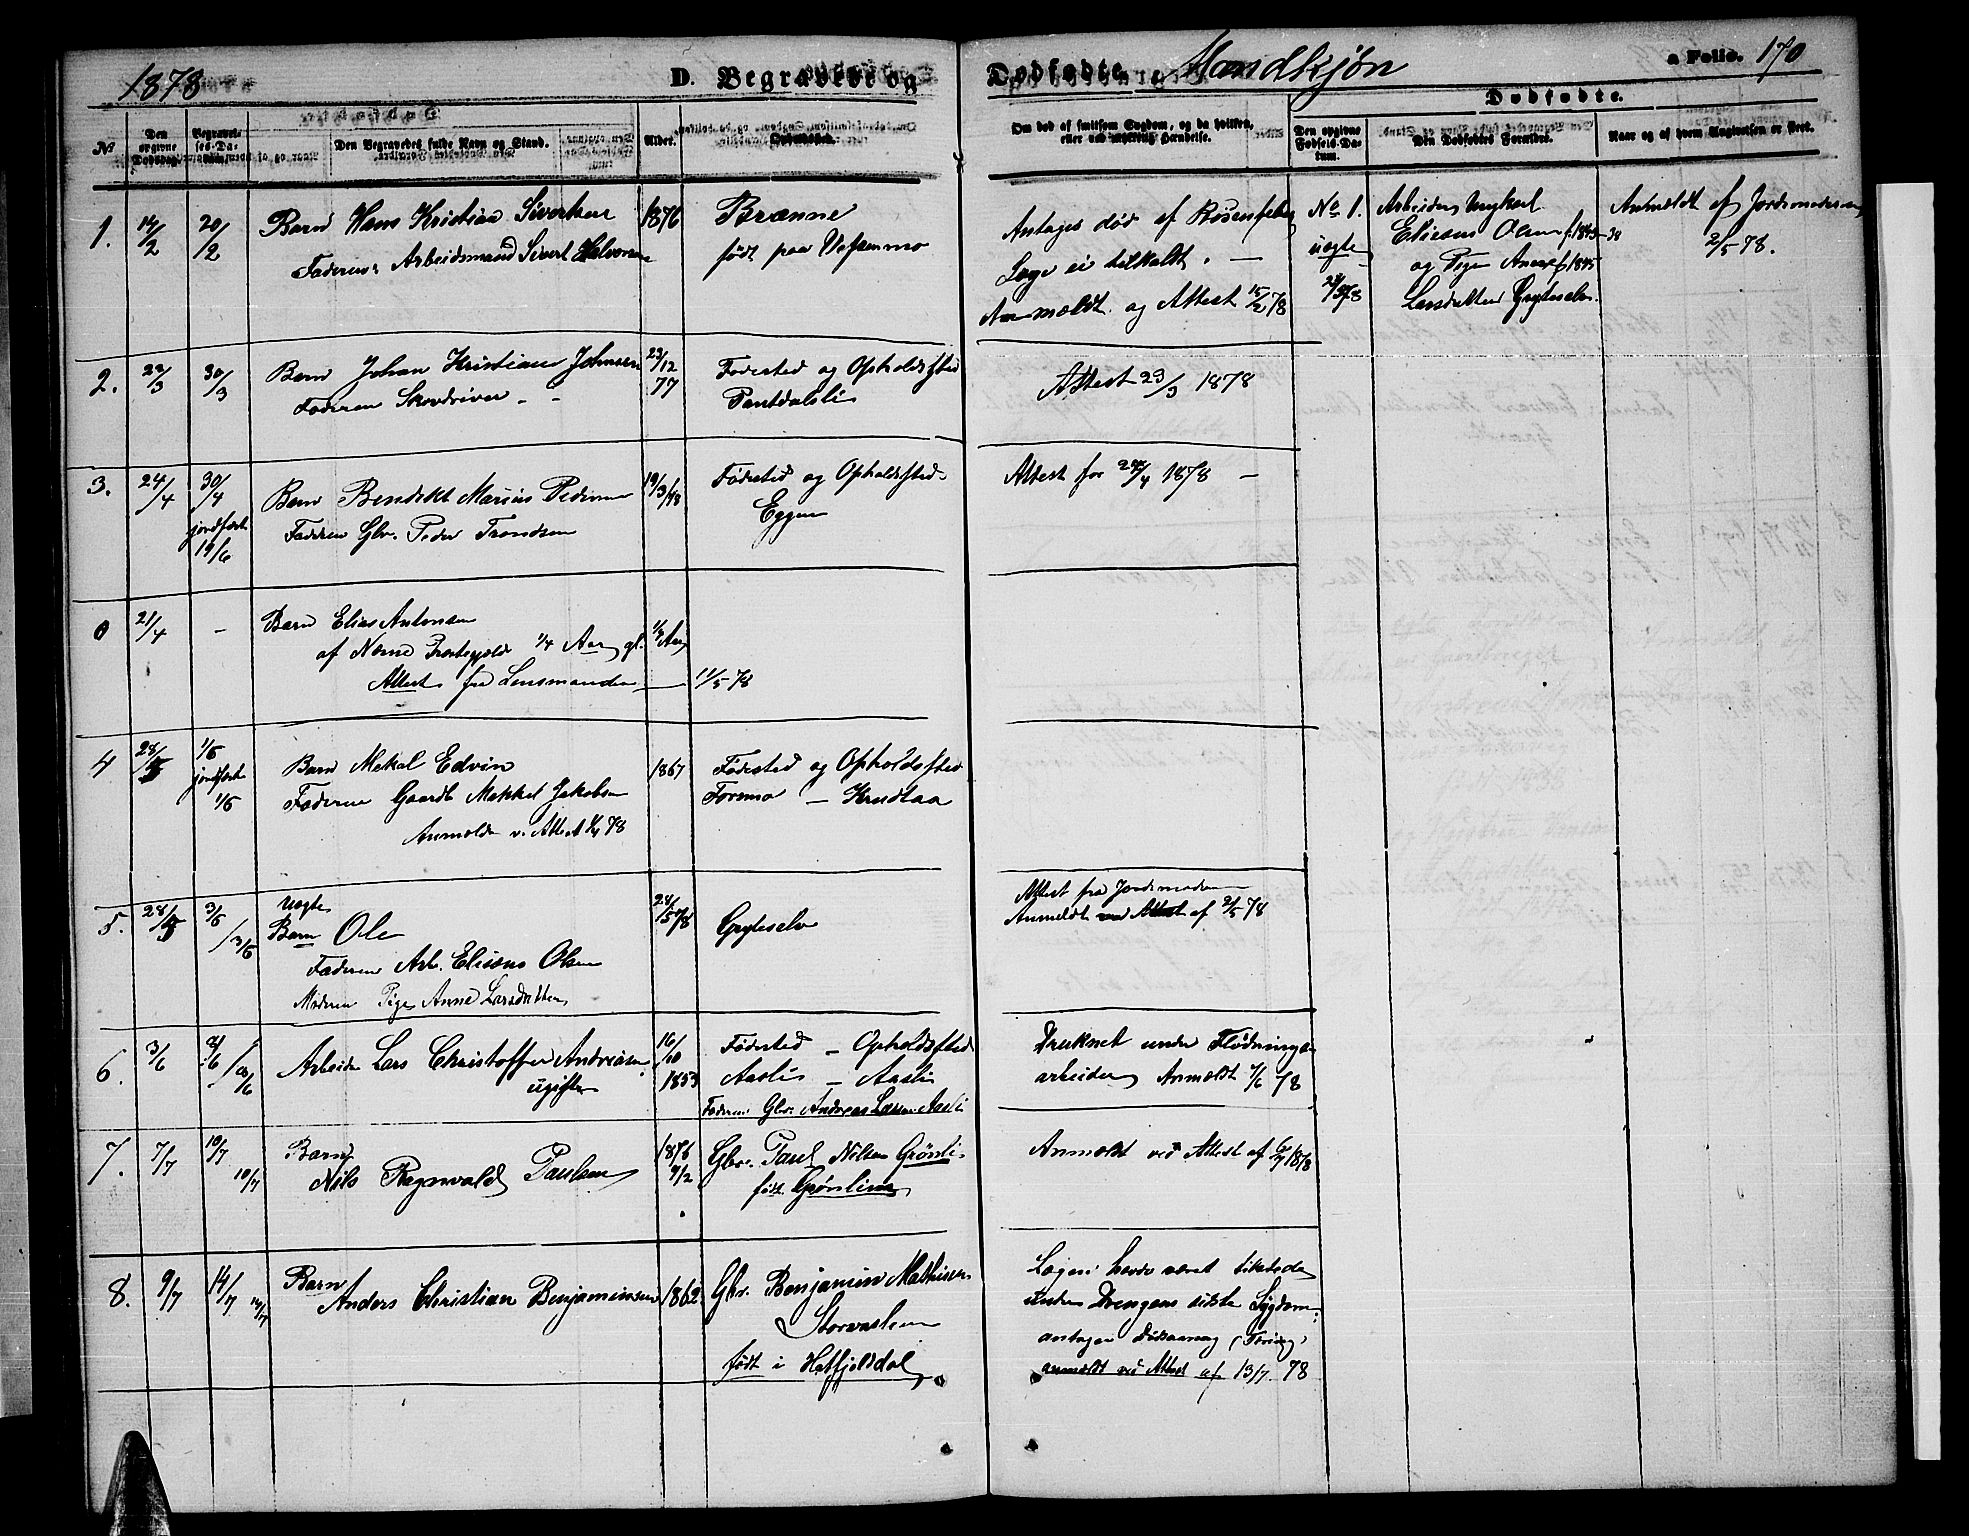 1878
D. Begravede og Dødfødte. Mandkjøn
a Folio. 170
Dødfødte.
No.
Den opgivne Dødsdag.
Begravelses-Datum.
Den Begravedes fulde Navn og Stand.
Alder.
Om død af smitsom Sygdom, og da hvilken, eller ved ulykkelig Hændelse.
Den opgivne Fødsels-Datum.
Den Dødfødtes Forældre.
Naar og af hvem Angivelsen er skeet.
1. 14/2 20/2 Barn Hans Kristian Sivertsen 1876 Brænne
Faderen: Arbeidsmand Sivert Halvorsen født paa Vefsenmo
Antages død af Rosenfeber
Læge ei tilkaldt. —
Anmeldt og Attest 15/2 78
No 1. uægte
Arbeider Ungkarl
Elisæus Olsen f. 1843
og Pige Anne f. 1845
Larsdatter Gryteselv.
Anmeldt af Jordemoderen
2/5 78.
2. 22/3 30/3 Barn Johan Kristian Johnsen 23/12 77 Fødested og Opholdssted
Faderen Skovdriver Pantdalsli
Attest 23/3 1878
3. 24/4 30/4 Barn Bendikt Marius Pedersen 19/3 78 Fødested og Opholdssted
jordfæst 19/6 Faderen Gbr. Peder Trondsen Eggen
Attest for 1878 —
0 21/4 - Barn Elias Antonsen
af Næsne Præstegjeld 1/4 Aar gl. 1/4 Aar
Attest fra Lensmanden — 11/5 78
4 28/5 1/6 Barn Mekal Edvin 1867 Fødested og Opholdssted
jordfæst 1/6 Faderen Gaardb. Mekkel Jakobsen Foremo — Krudtaa
Anmeldt v. Attest 78
5. 28/5 3/6 /3/6 uægte
Barn Ole 24/5 78 Gryteselv
Faderen Arb. Elisæus Olsen
Moderen Pige Anne Larsdatter
Attest fra Jordemoderen
Anmeldt ved Attest af 2/5 78
6. 3/6 8/6 /8/6 Arbeider Lars Christoffer Andreasen 16/10 1853 Fødested — Opholdssted
ugift Aasli — Aasli
Faderen: Gbr. Andreas Larsen Aasli
Druknet under Flødnings-
arbeide. Anmeldt 7/6 78
7. 7/7 10/7 10/7 Barn 1876 9/2 Gbr. Paul Nilsen Grønli
Nils Regnvald Paulsen født Grønlien
Anmeldt ved Attest af 1878
8. 9/7 14/7 14/7 Barn
Anders Christian Benjaminsen 1862 Gbr. Benjamin Mathisen
Storvaslien
født i Hatfjelddal
Lægen havde været tilstede
under Drengens sidste Sygdom,
antagen
anmeldt ved Attest af 13/7 78